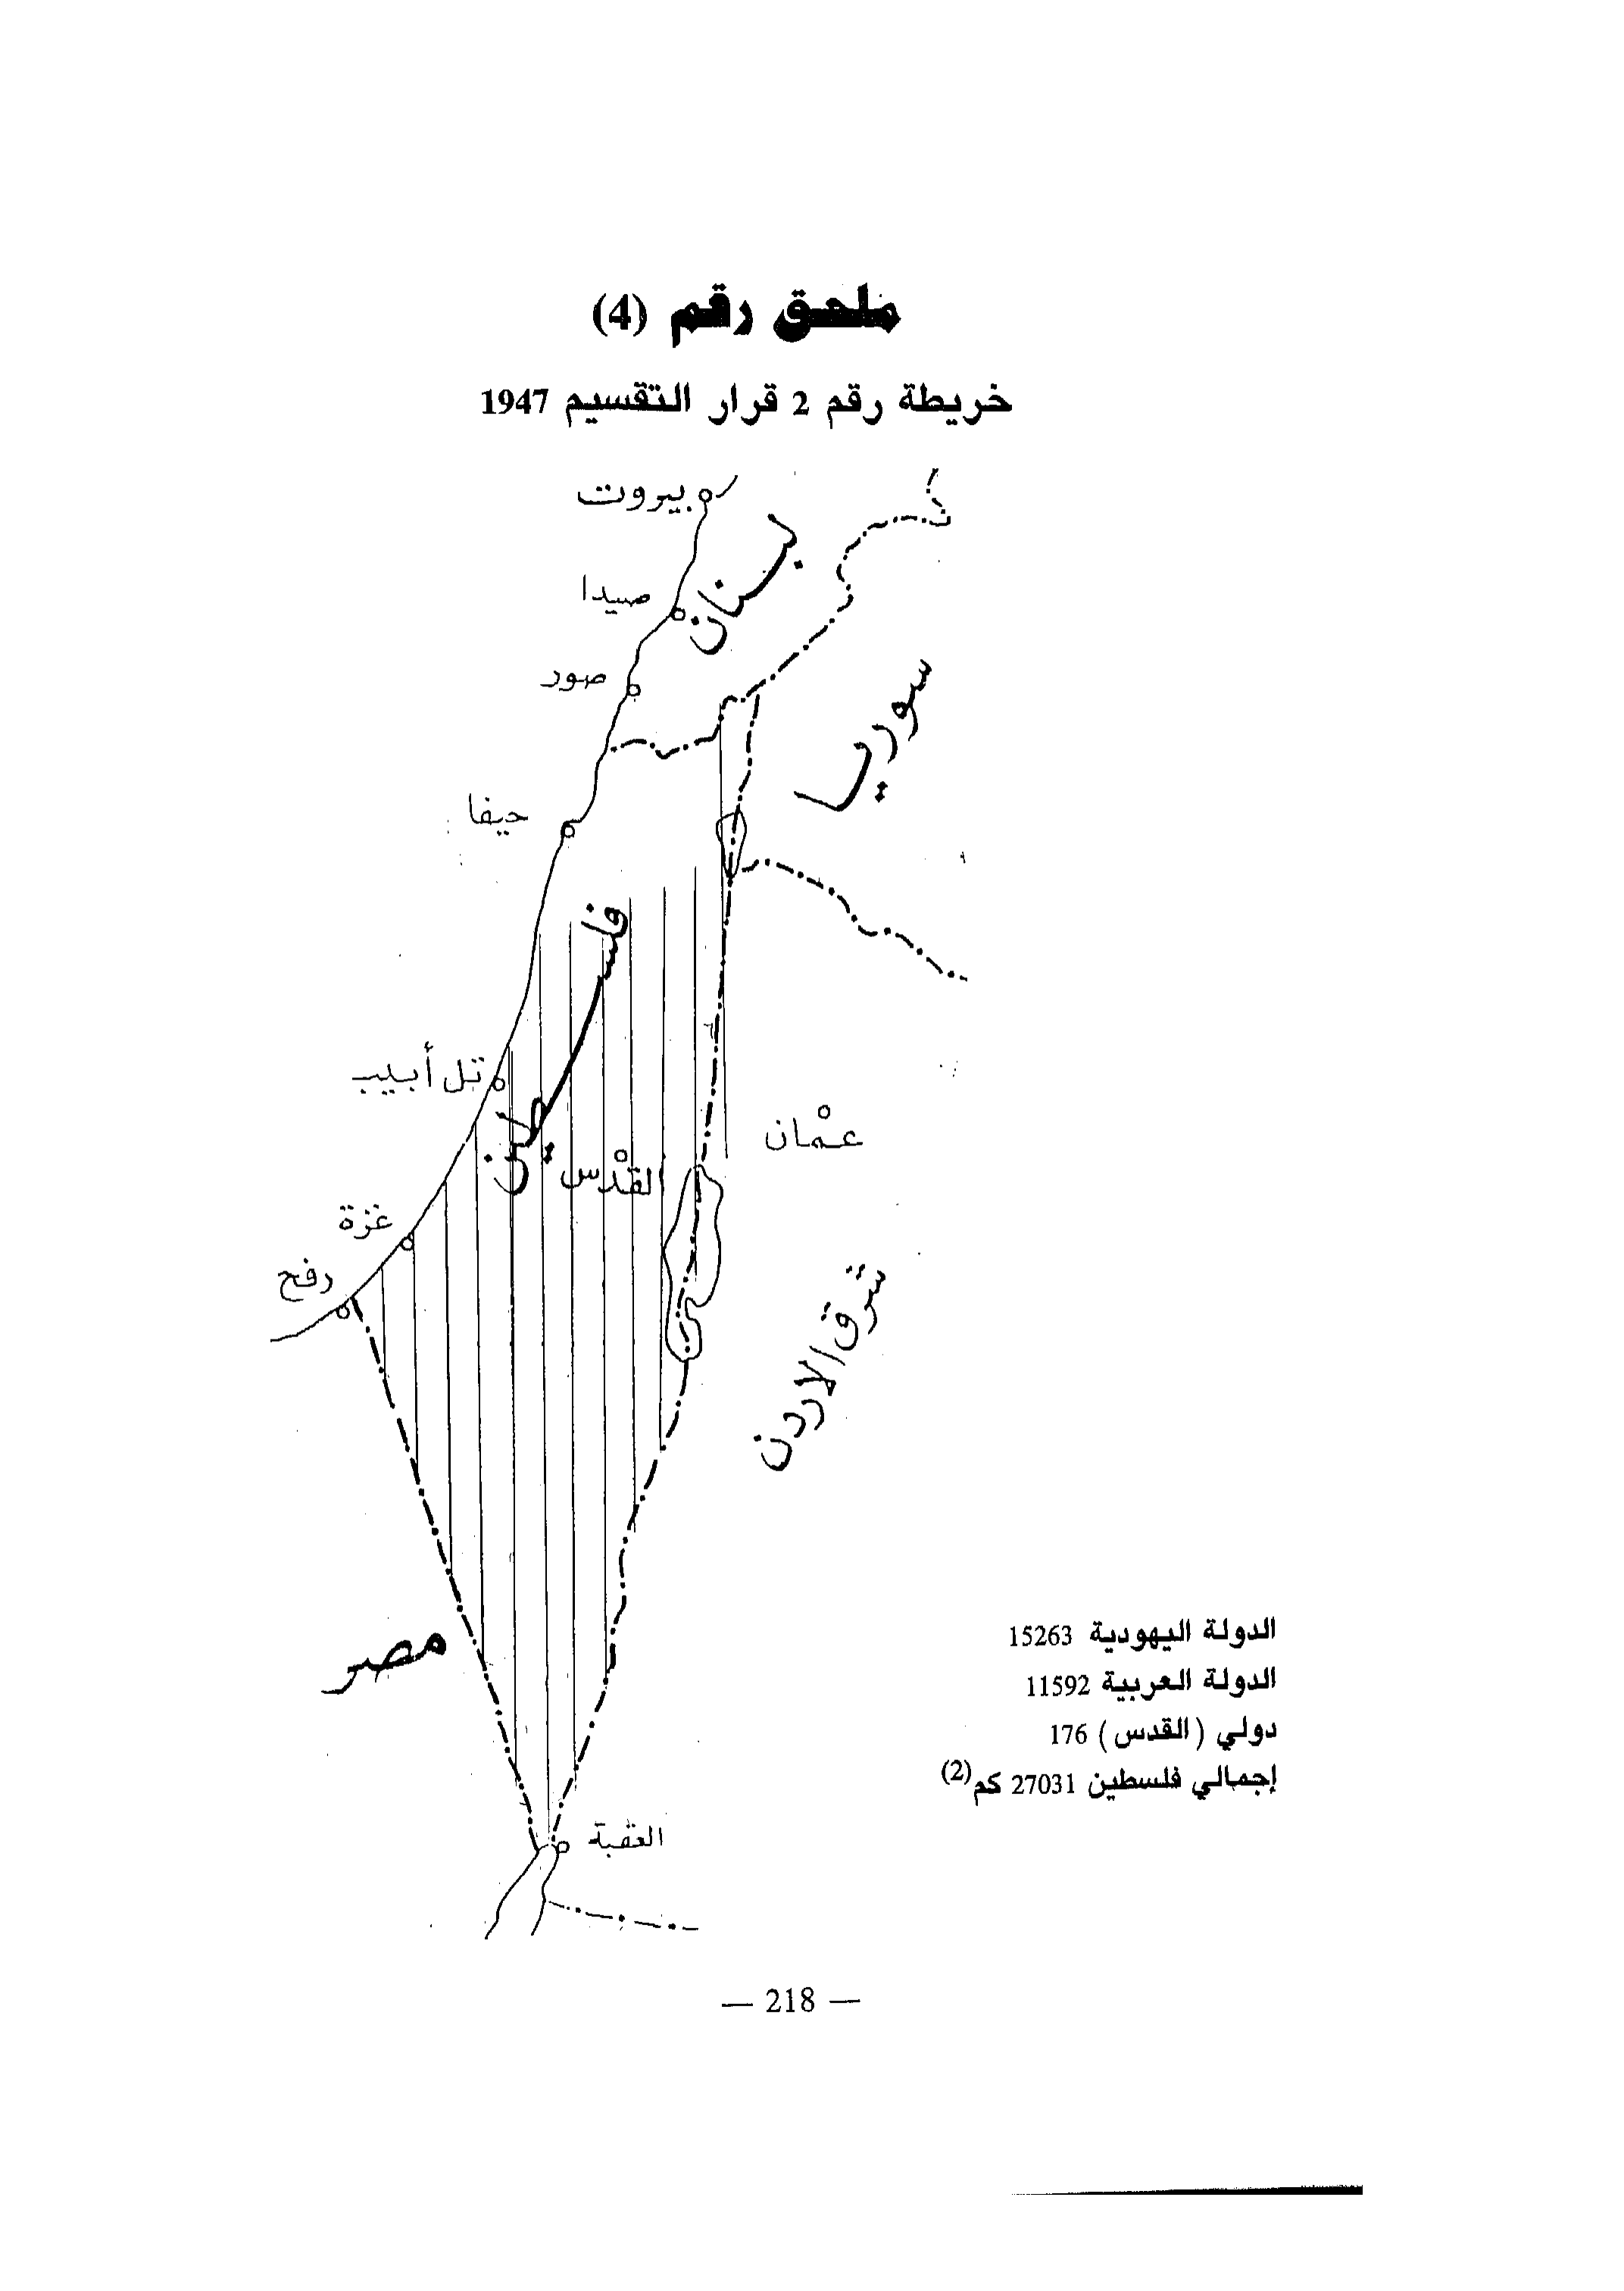 ملحق رقم (4)
خريطة رقم 2 قرار التقسيم 1947
بيروت
لبنان
صيدا
صور
سوريا
حيفا
فلسطين
تل أبيب
عمان
القدس
غزة
رفح
شرق الاردن
مصر
الدولة اليهودية 15263
الدولة العربية 11592
دولي (القدس) 176
إجمالي فلسطين 27031 كم(2)
العقبة
— 218 —